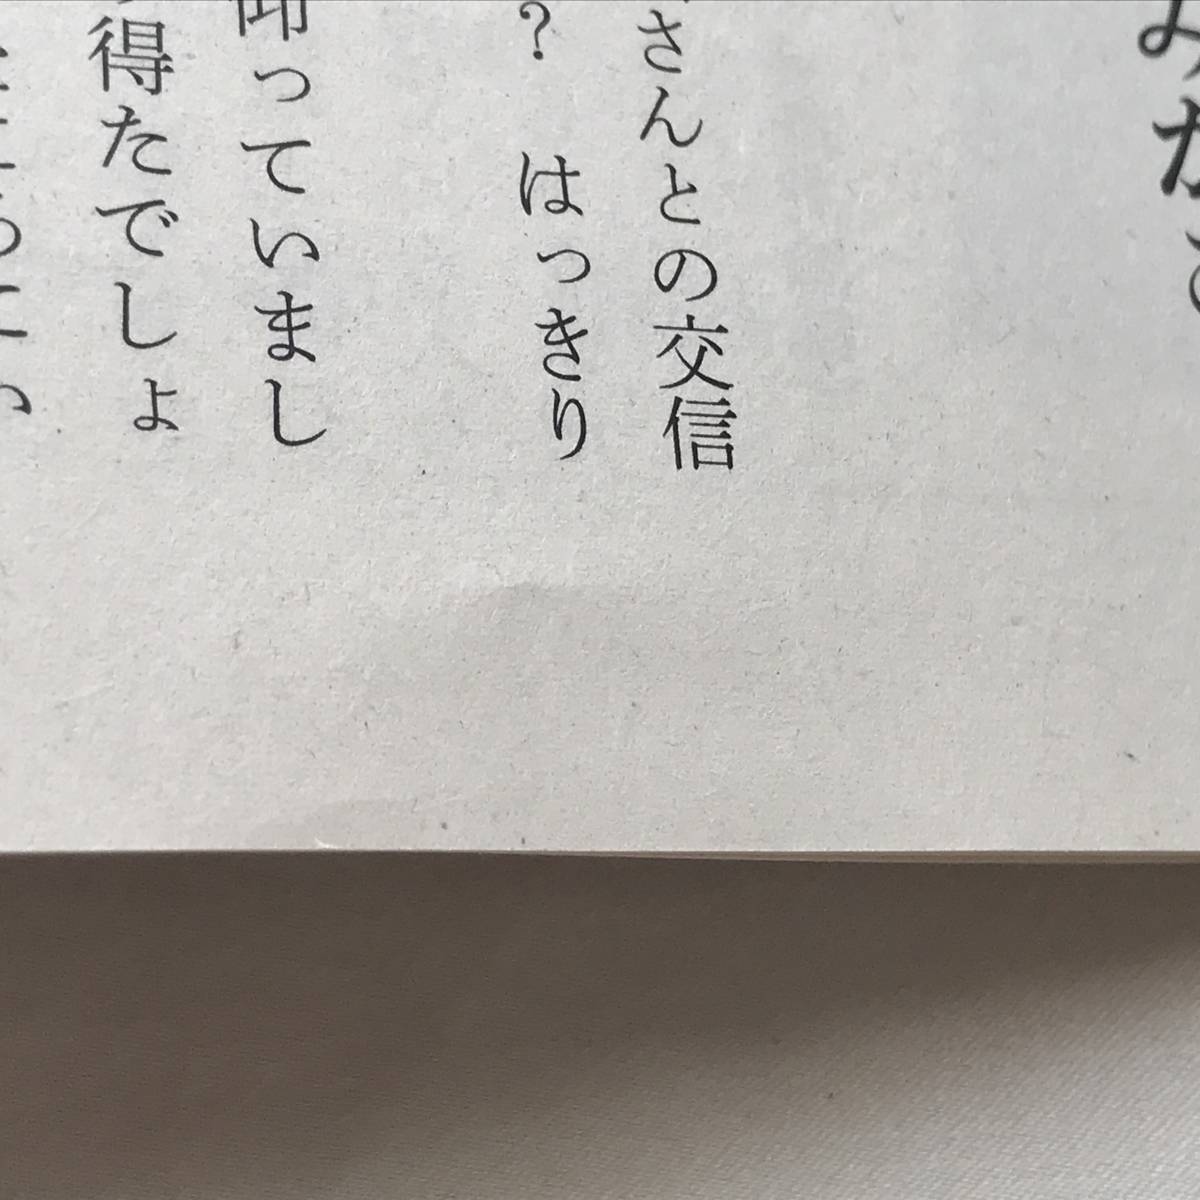 みが
さんとの交信
？　はっきり
仰っていまし
得たでしょ